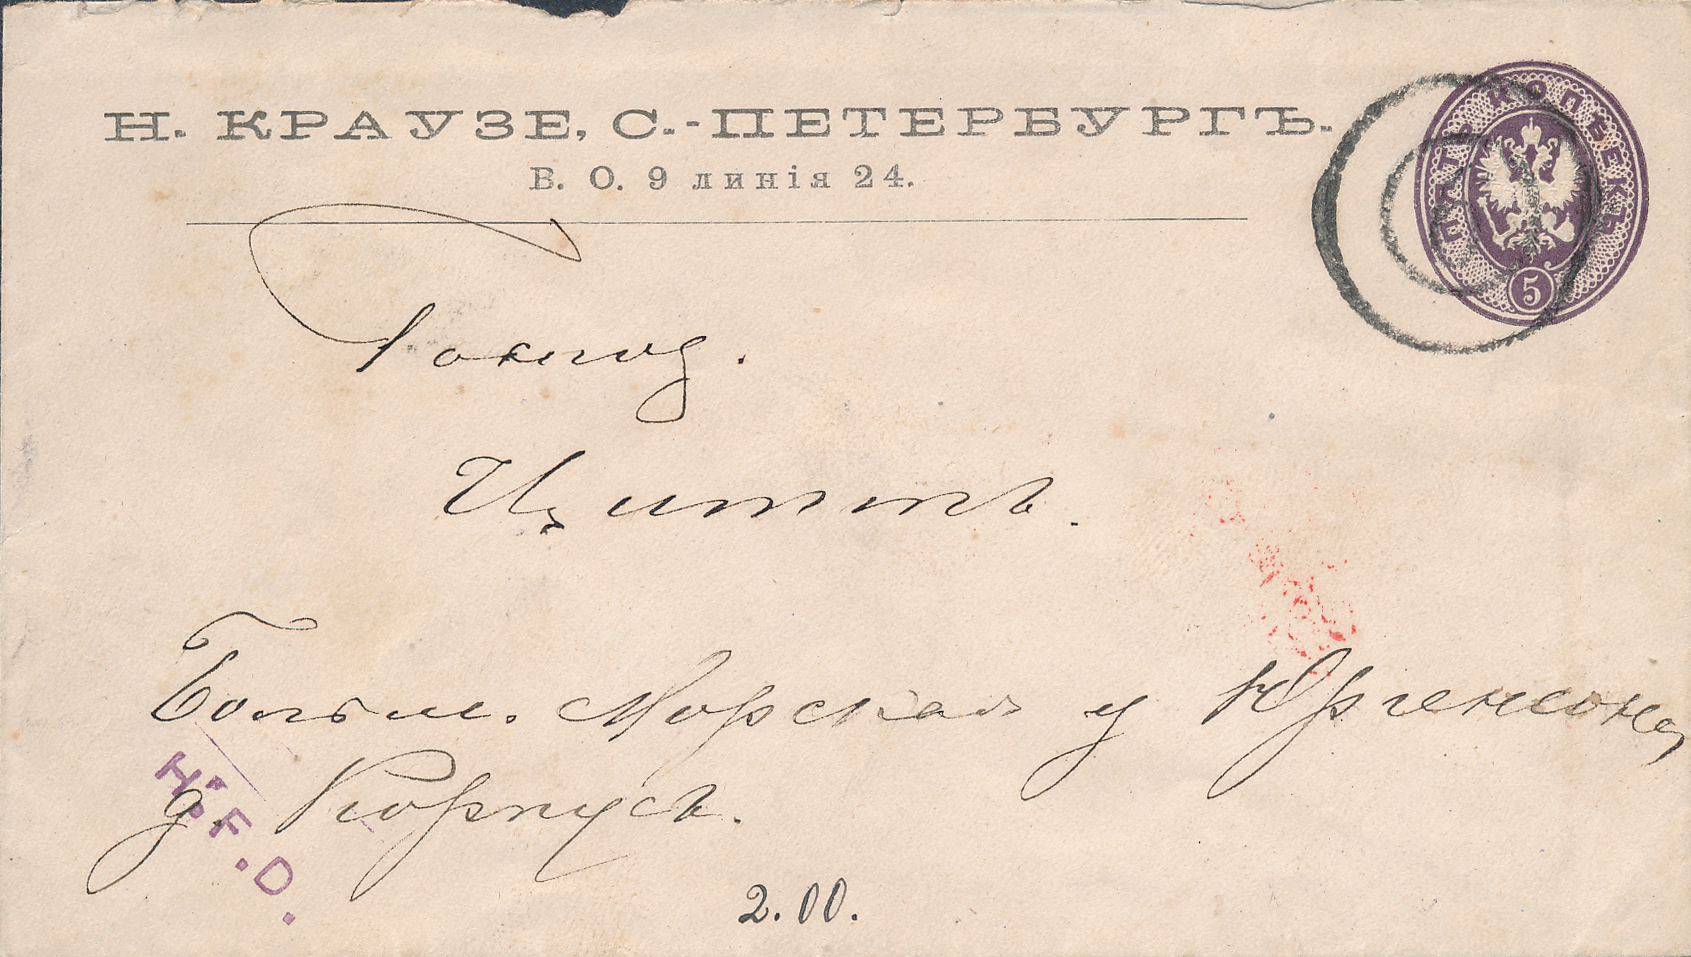 Н. КРАУЗЕ, С.-ПЕТЕРБУРГЪ.
В. О. 9 линія 24.
ПЯТЬ КОПѢЕКЪ
5
Господ.
Циттъ.
Больш. Морская у Юргенсона,
д. Корпусъ.
H.F.D.
2.00.